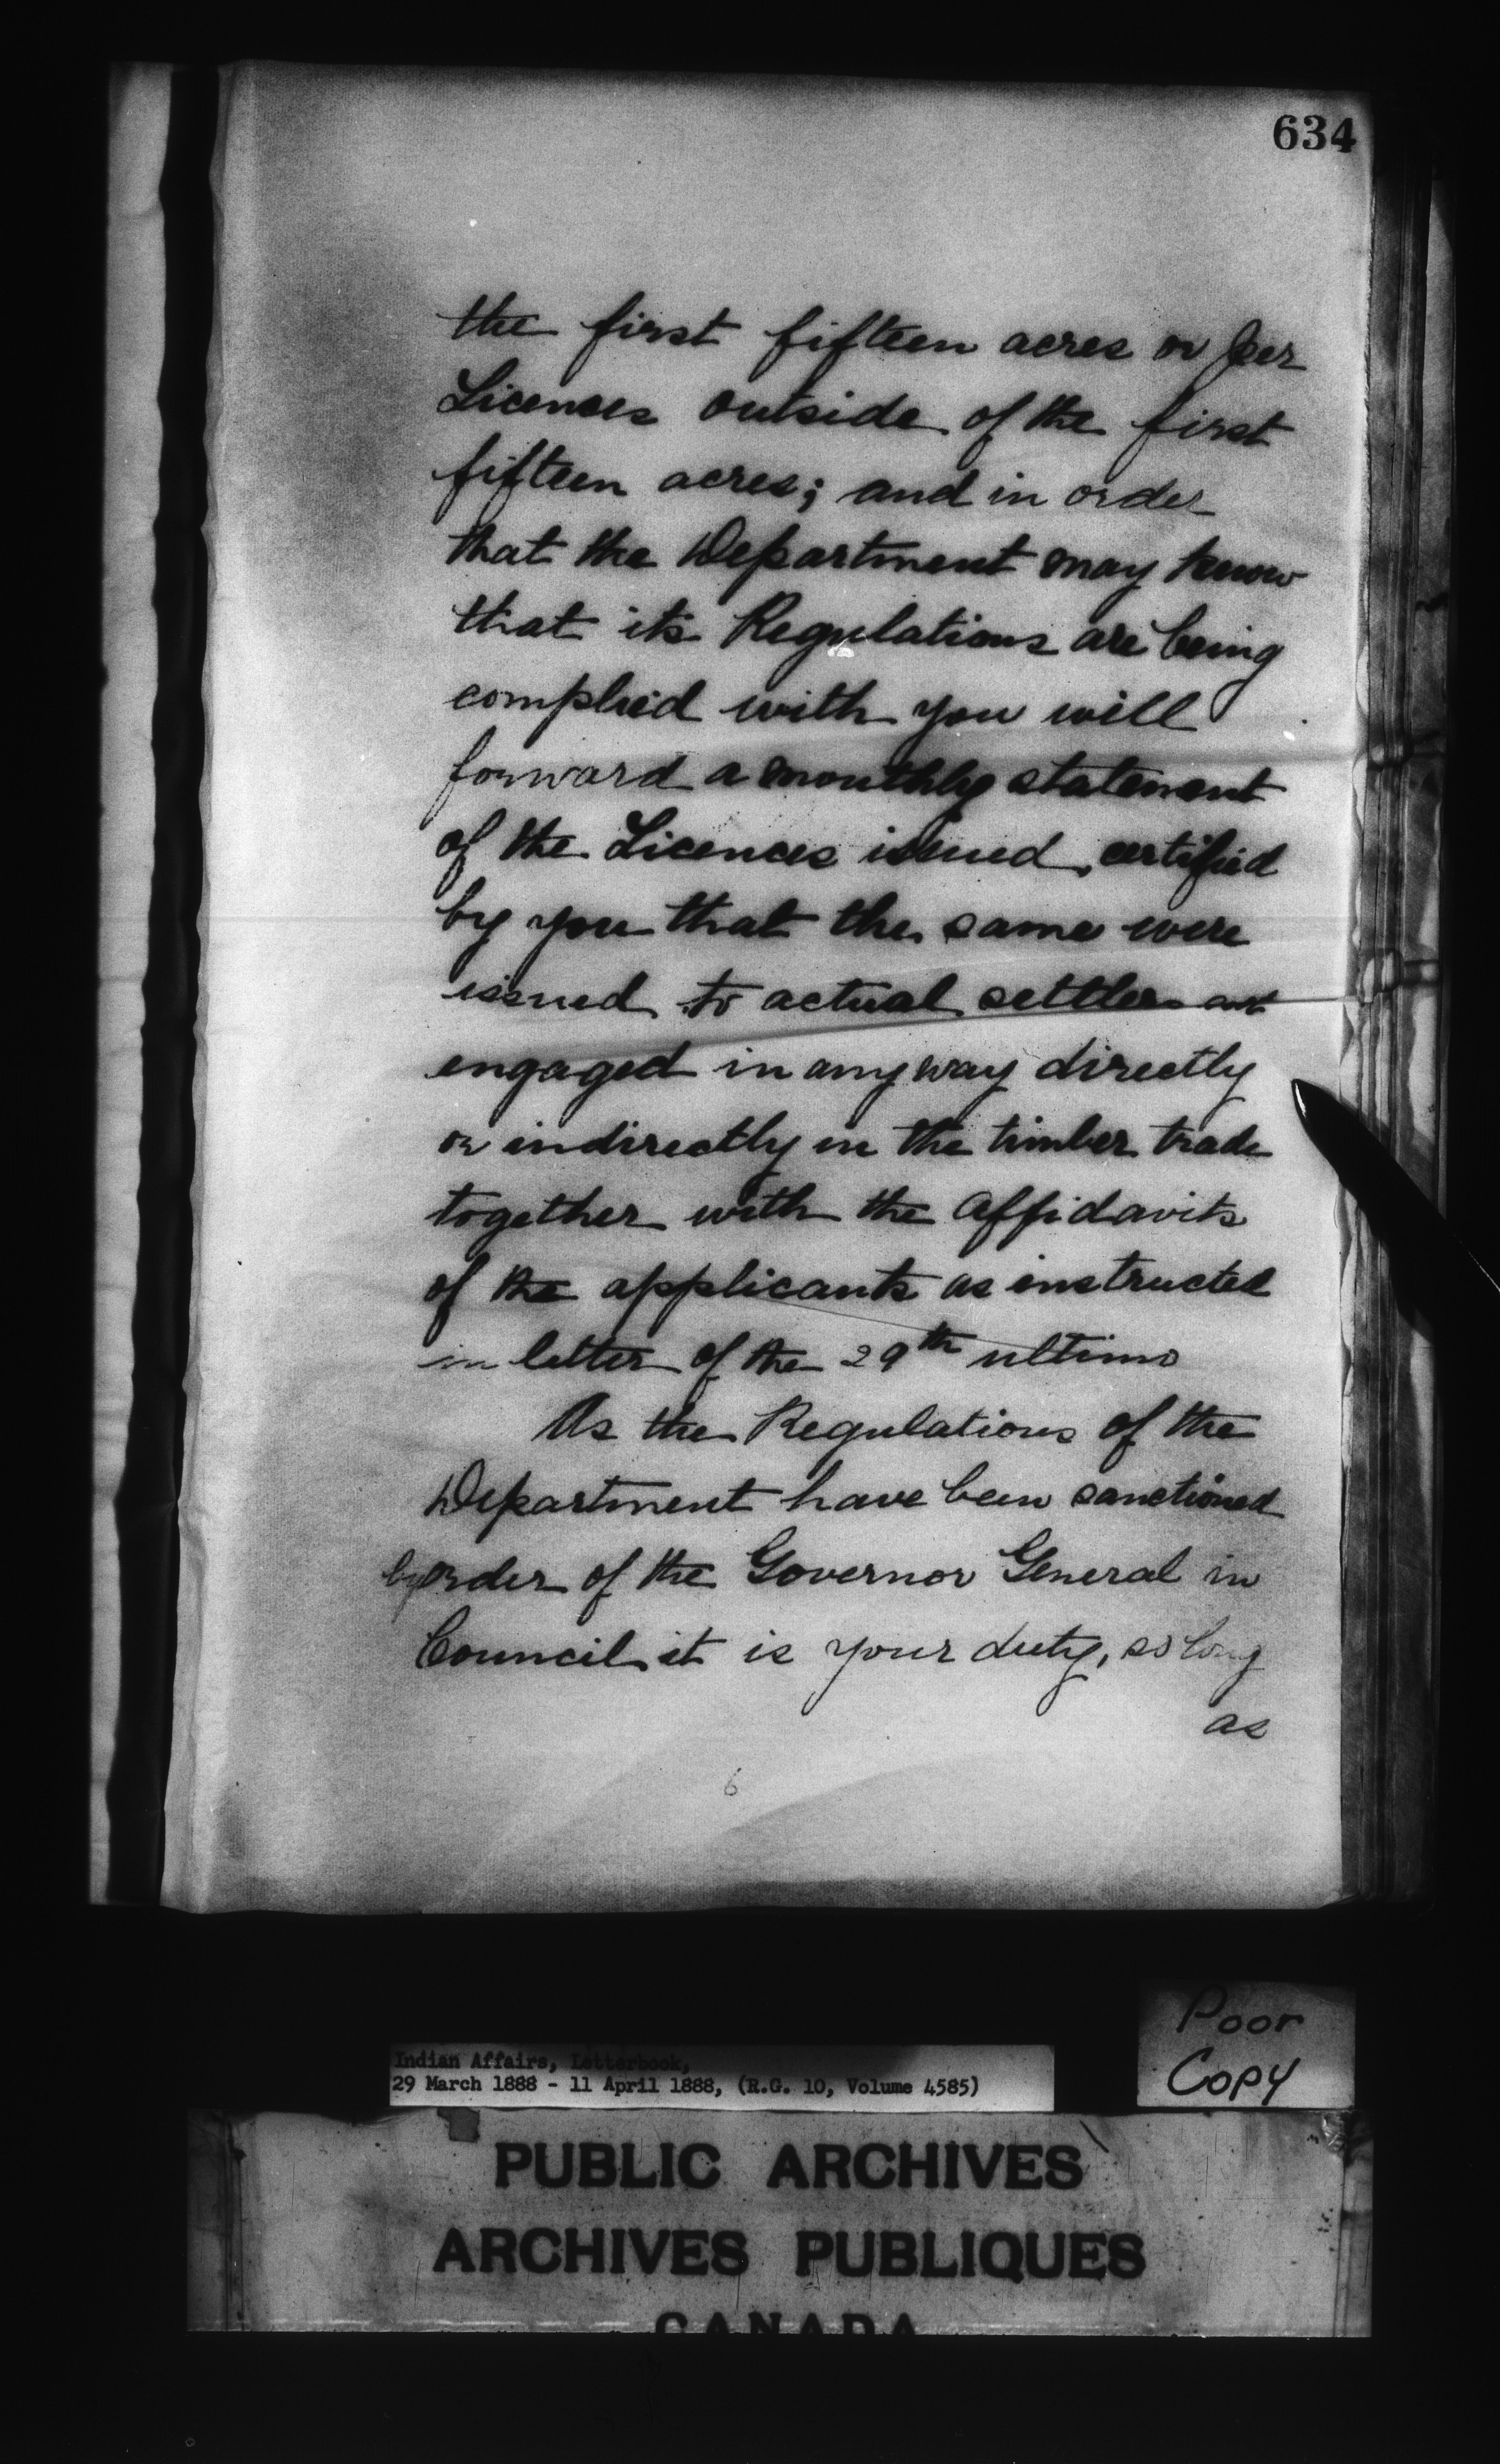 634
the first fifteen acres or per
Licences outside of the first
fifteen acres; and in order
that the Department may know
that its Regulations are being
complied with you will
forward a monthly statement
of the Licences issued, certified
by you that the same were
issued to actual settlers not
engaged in any way directly
or indirectly in the timber trade
together with the affidavits
of the applicants as instructed
in letter of the 29th ultimo
As the Regulations of the
Department have been sanctioned
by order of the Governor General in
Council it is your duty, so long
as
6
Poor
Copy
Indian Affairs, Letterbook,
29 March 1888 - 11 April 1888, (R.G. 10, Volume 4585)
PUBLIC ARCHIVES
ARCHIVES PUBLIQUES
CANADA